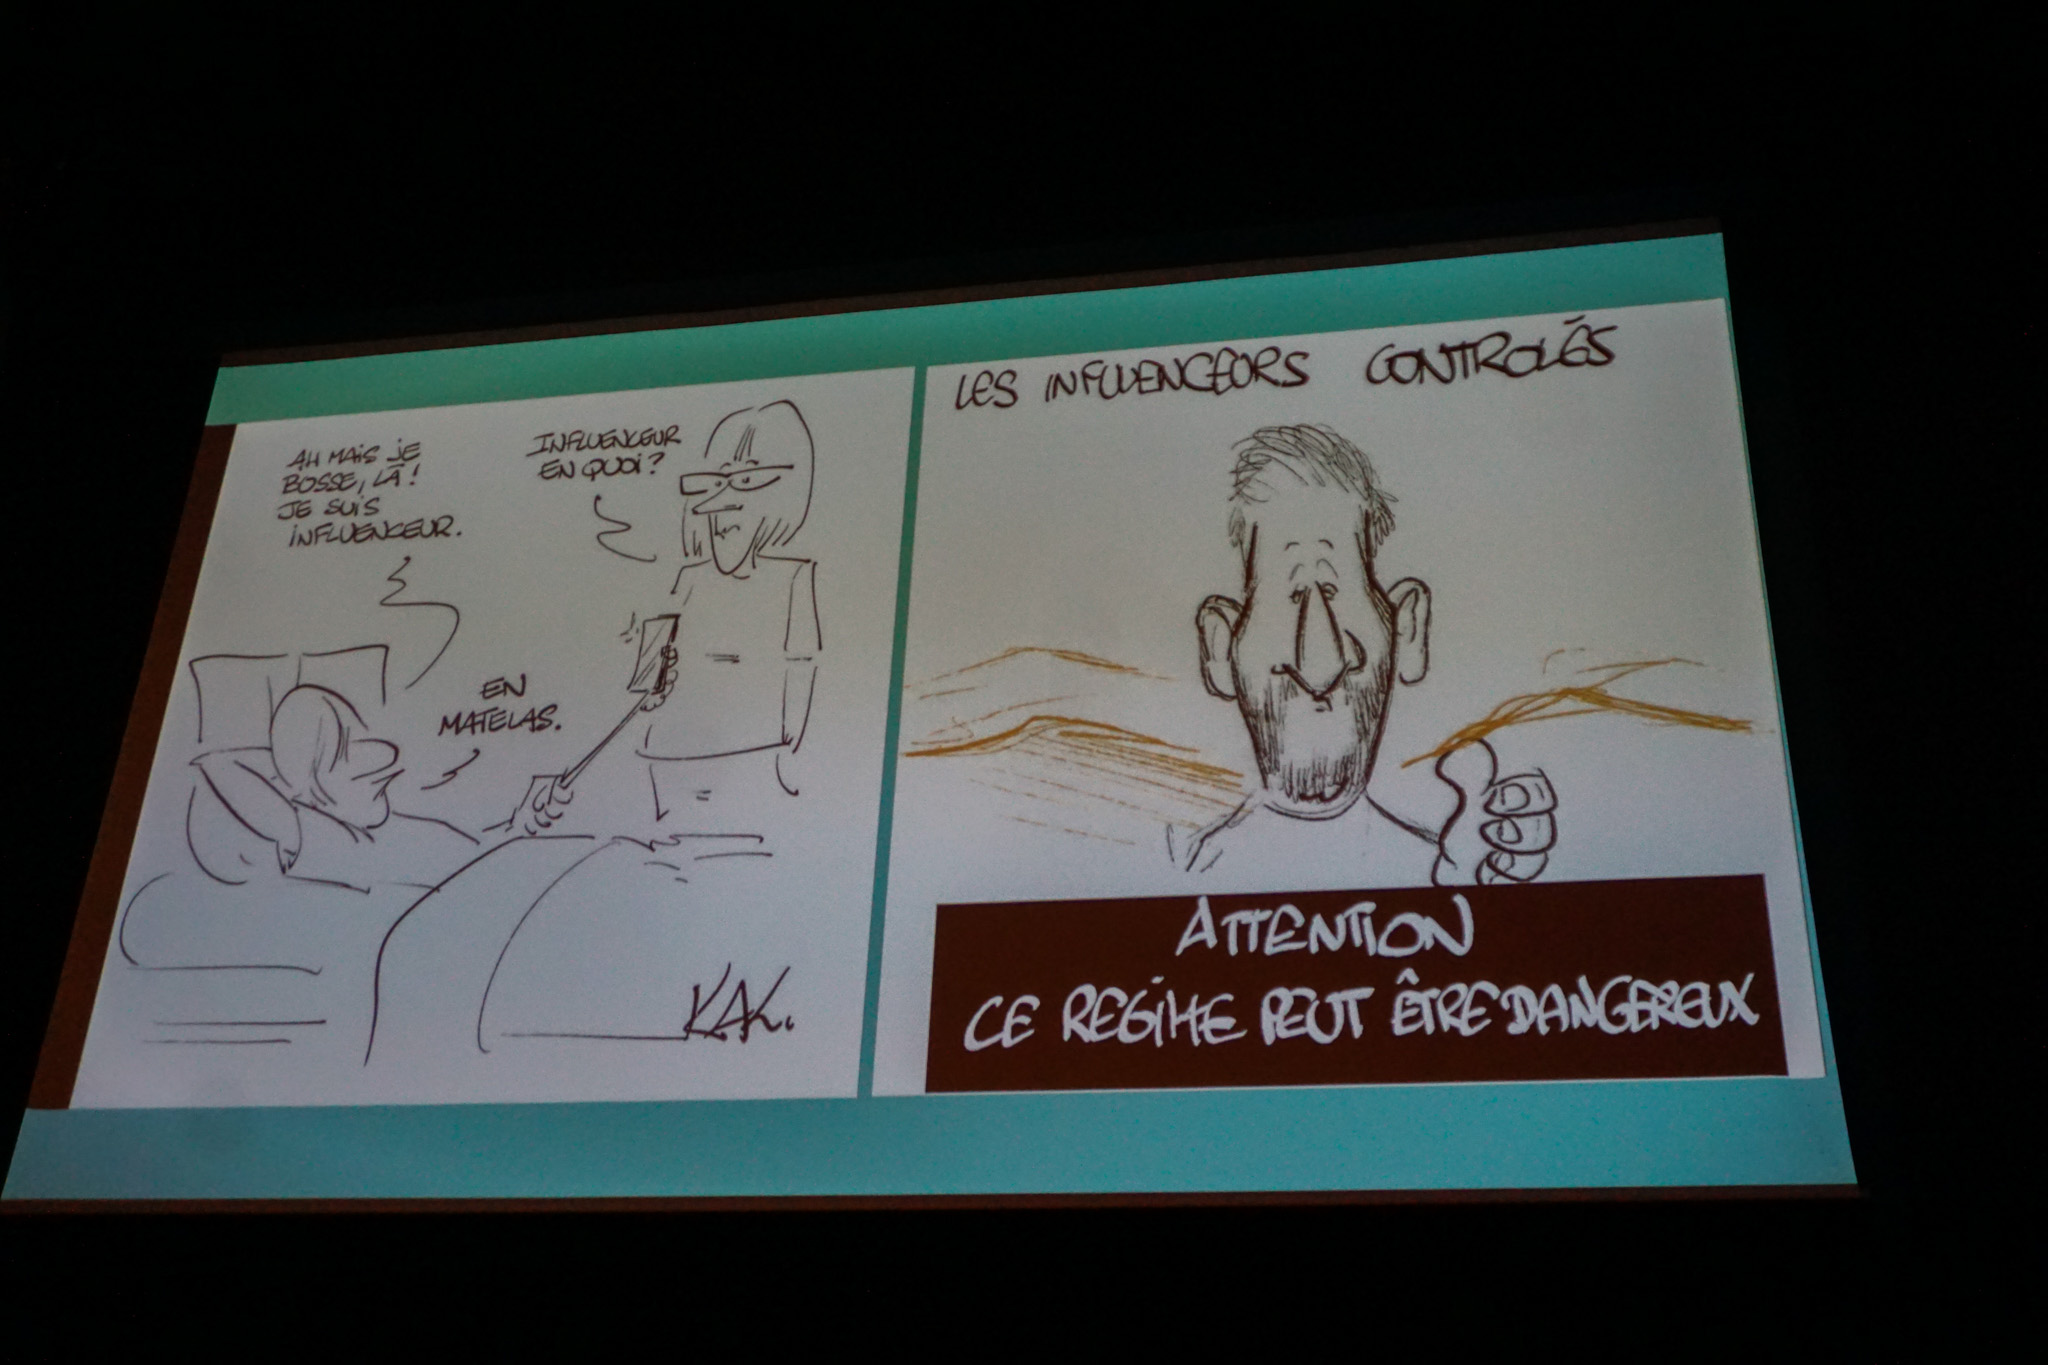 AH MAIS JE
BOSSE, LÀ !
JE SUIS
INFLUENCEUR.
INFLUENCEUR
EN QUOI ?
EN
MATELAS.
KAK.
LES INFLUENCEURS CONTROLÉS
ATTENTION
CE REGIME PEUT ÊTRE DANGEREUX